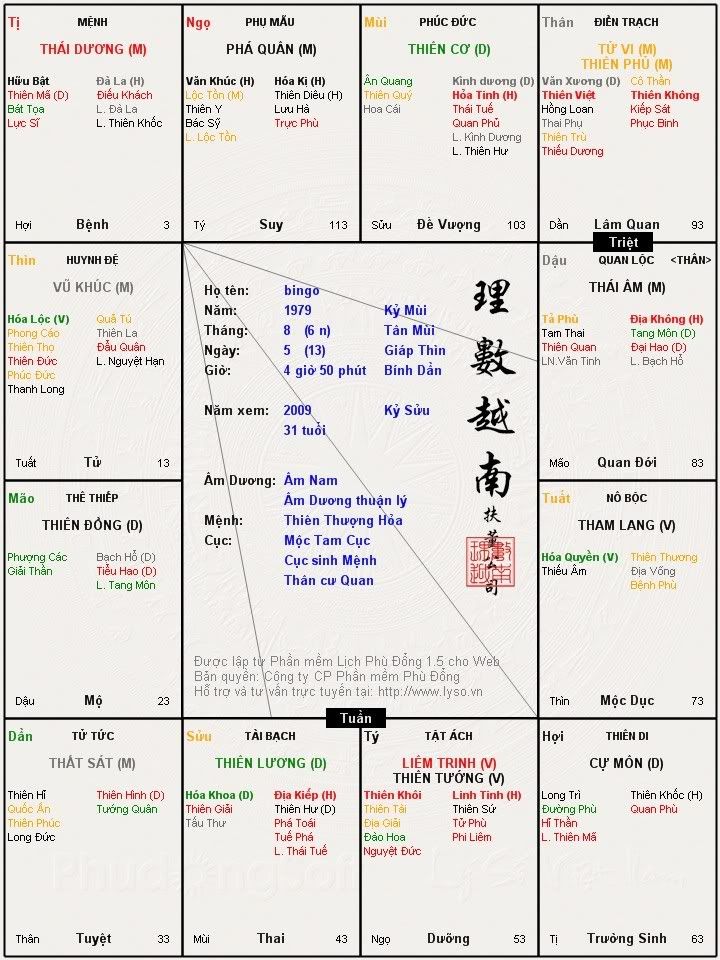 Tị MỆNH
THÁI DƯƠNG (M)
Hữu Bật Đà La (H)
Thiên Mã (D) Điếu Khách
Bát Tọa L. Đà La
Lực Sĩ L. Thiên Khốc
Hợi Bệnh 3
Ngọ PHỤ MẪU
PHÁ QUÂN (M)
Văn Khúc (H) Hóa Kị (H)
Lộc Tồn (M) Thiên Diêu (H)
Thiên Y Lưu Hà
Bác Sỹ Trực Phù
L. Lộc Tồn
Tý Suy 113
Mùi PHÚC ĐỨC
THIÊN CƠ (D)
Ân Quang Kình dương (D)
Thiên Quý Hỏa Tinh (H)
Hoa Cái Thái Tuế
Quan Phủ
L. Kình Dương
L. Thiên Hư
Sửu Đế Vượng 103
Thân ĐIỀN TRẠCH
TỬ VI (M)
THIÊN PHỦ (M)
Văn Xương (D) Cô Thần
Thiên Việt Thiên Không
Hồng Loan Kiếp Sát
Thai Phụ Phục Binh
Thiên Trù
Thiếu Dương
Dần Lâm Quan 93
Triệt
Thìn HUYNH ĐỆ
VŨ KHÚC (M)
Hóa Lộc (V) Quả Tú
Phong Cáo Thiên La
Thiên Thọ Đẩu Quân
Thiên Đức L. Nguyệt Hạn
Phúc Đức
Thanh Long
Tuất Tử 13
Họ tên: bingo
Năm: 1979 Kỷ Mùi
Tháng: 8 (6 n) Tân Mùi
Ngày: 5 (13) Giáp Thìn
Giờ: 4 giờ 50 phút Bính Dần
Năm xem: 2009 Kỷ Sửu
31 tuổi
Âm Dương: Âm Nam
Âm Dương thuận lý
Mệnh: Thiên Thượng Hỏa
Cục: Mộc Tam Cục
Cục sinh Mệnh
Thân cư Quan
理數越南
扶董公司
Được lập từ Phần mềm Lịch Phù Đổng 1.5 cho Web
Bản quyền: Công ty CP Phần mềm Phù Đổng
Hỗ trợ và tư vấn trực tuyến tại: http://www.lyso.vn
Dậu QUAN LỘC <THÂN>
THÁI ÂM (M)
Tả Phù Địa Không (H)
Tam Thai Tang Môn (D)
Thiên Quan Đại Hao (D)
LN.Văn Tinh L. Bạch Hổ
Mão Quan Đới 83
Mão THÊ THIẾP
THIÊN ĐỒNG (D)
Phượng Các Bạch Hổ (D)
Giải Thần Tiểu Hao (D)
L. Tang Môn
Dậu Mộ 23
Tuất NÔ BỘC
THAM LANG (V)
Hóa Quyền (V) Thiên Thương
Thiếu Âm Địa Võng
Bệnh Phù
Thìn Mộc Dục 73
Dần TỬ TỨC
THẤT SÁT (M)
Thiên Hỉ Thiên Hình (D)
Quốc Ấn Tướng Quân
Thiên Phúc
Long Đức
Thân Tuyệt 33
Tuần
Sửu TÀI BẠCH
THIÊN LƯƠNG (D)
Hóa Khoa (D) Địa Kiếp (H)
Thiên Giải Thiên Hư (D)
Tấu Thư Phá Toái
Tuế Phá
L. Thái Tuế
Mùi Thai 43
Tý TẬT ÁCH
LIÊM TRINH (V)
THIÊN TƯỚNG (V)
Thiên Khôi Linh Tinh (H)
Thiên Tài Thiên Sứ
Địa Giải Tử Phù
Đào Hoa Phi Liêm
Nguyệt Đức
Ngọ Dưỡng 53
Hợi THIÊN DI
CỰ MÔN (D)
Long Trì Thiên Khốc (H)
Đường Phù Quan Phù
Hỉ Thần
L. Thiên Mã
Tị Trường Sinh 63